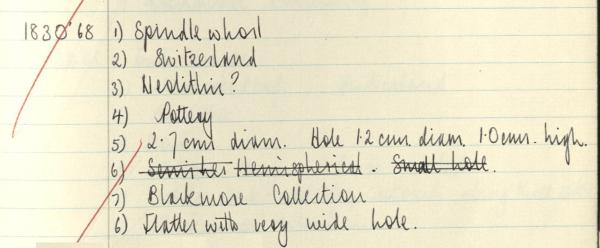 1830'68 1) Spindle whorl
2) Switzerland
3) Neolithic?
4) Pottery
5) 2.7 cms diam. Hole 1.2 cms. diam. 1.0 cms. high.
6) Hemispherical. Small hole.
7) Blackmore Collection
6) Flatter with very wide hole.